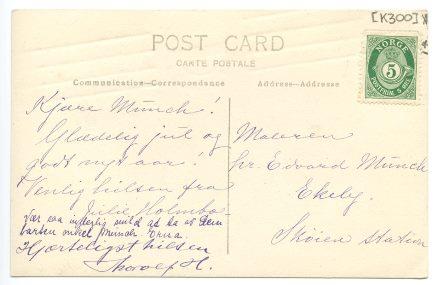 [K300]
POST CARD
CARTE POSTALE
Communication—Correspondance
Address—Addresse
NORGE
5
POSTFRIM. 5 ØRE
Kjære Munch!
Glædelig jul og
godt nyt aar!
Venlig hilsen fra
Julie Holmboe
Vær saa inderlig snild at ta
onkel Munch.
Hjerteligst hilsen
H.
Maleren
hr. Edvard Munch
Ekely
Skøien station